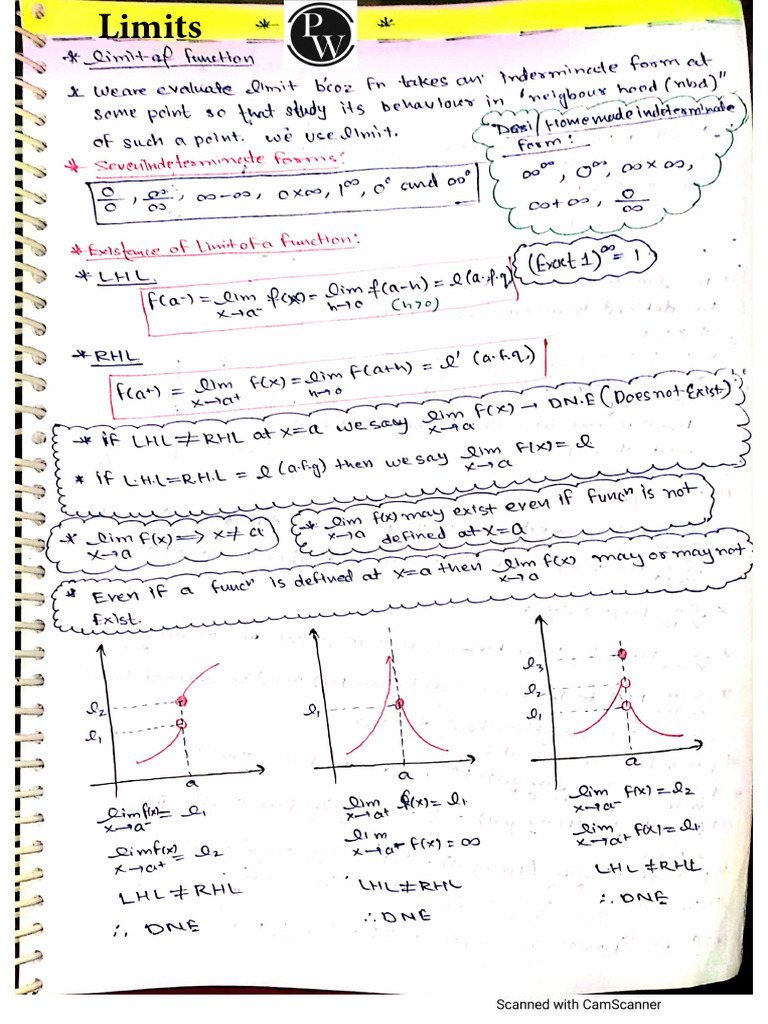 Limits
PW
* Limit of function
* We are evaluate limit b'coz Fn takes an inderminade form at
some point so that study its behaviour in "neigbour hood (nbd)"
of such a point. we use limit.
Desi/Homemade indeterminate
form:
∞^∞, 0^∞, ∞×∞,
∞+∞, 0/∞
* Seven indeterminate forms:
0/0, ∞/∞, ∞-∞, 0×∞, 1^∞, 0⁰ and ∞⁰
* Existance of Limit of a function:
* LHL
f(a-) = lim x→a⁻ f(x) = lim h→0 f(a-h) = l (a.f.q)
(h>0)
(Exact 1)^∞ = 1
* RHL
f(a+) = lim x→a+ f(x) = lim h→0 f(a+h) = l' (a.f.q.)
* if LHL ≠ RHL at x=a we say lim x→a f(x) → D.N.E (Does not Exist)
* if L.H.L = R.H.L = l (a.f.g) then we say lim x→a f(x) = l
* lim x→a f(x) => x ≠ a
* lim x→a f(x) may exist even if funcⁿ is not
defined at x=a
* Even if a funcⁿ is defined at x=a then lim x→a f(x) may or may not
Exist.
l₂
l₁
a
lim f(x) = l₁
x→a⁻
lim f(x) = l₂
x→a+
LHL ≠ RHL
∴ DNE
l₁
a
lim x→a+ f(x) = l₁
lim x→a⁻ f(x) = ∞
LHL ≠ RHL
∴ DNE
l₃
l₂
l₁
a
lim x→a⁻ f(x) = l₂
lim x→a+ f(x) = l₁
LHL ≠ RHL
∴ DNE
Scanned with CamScanner